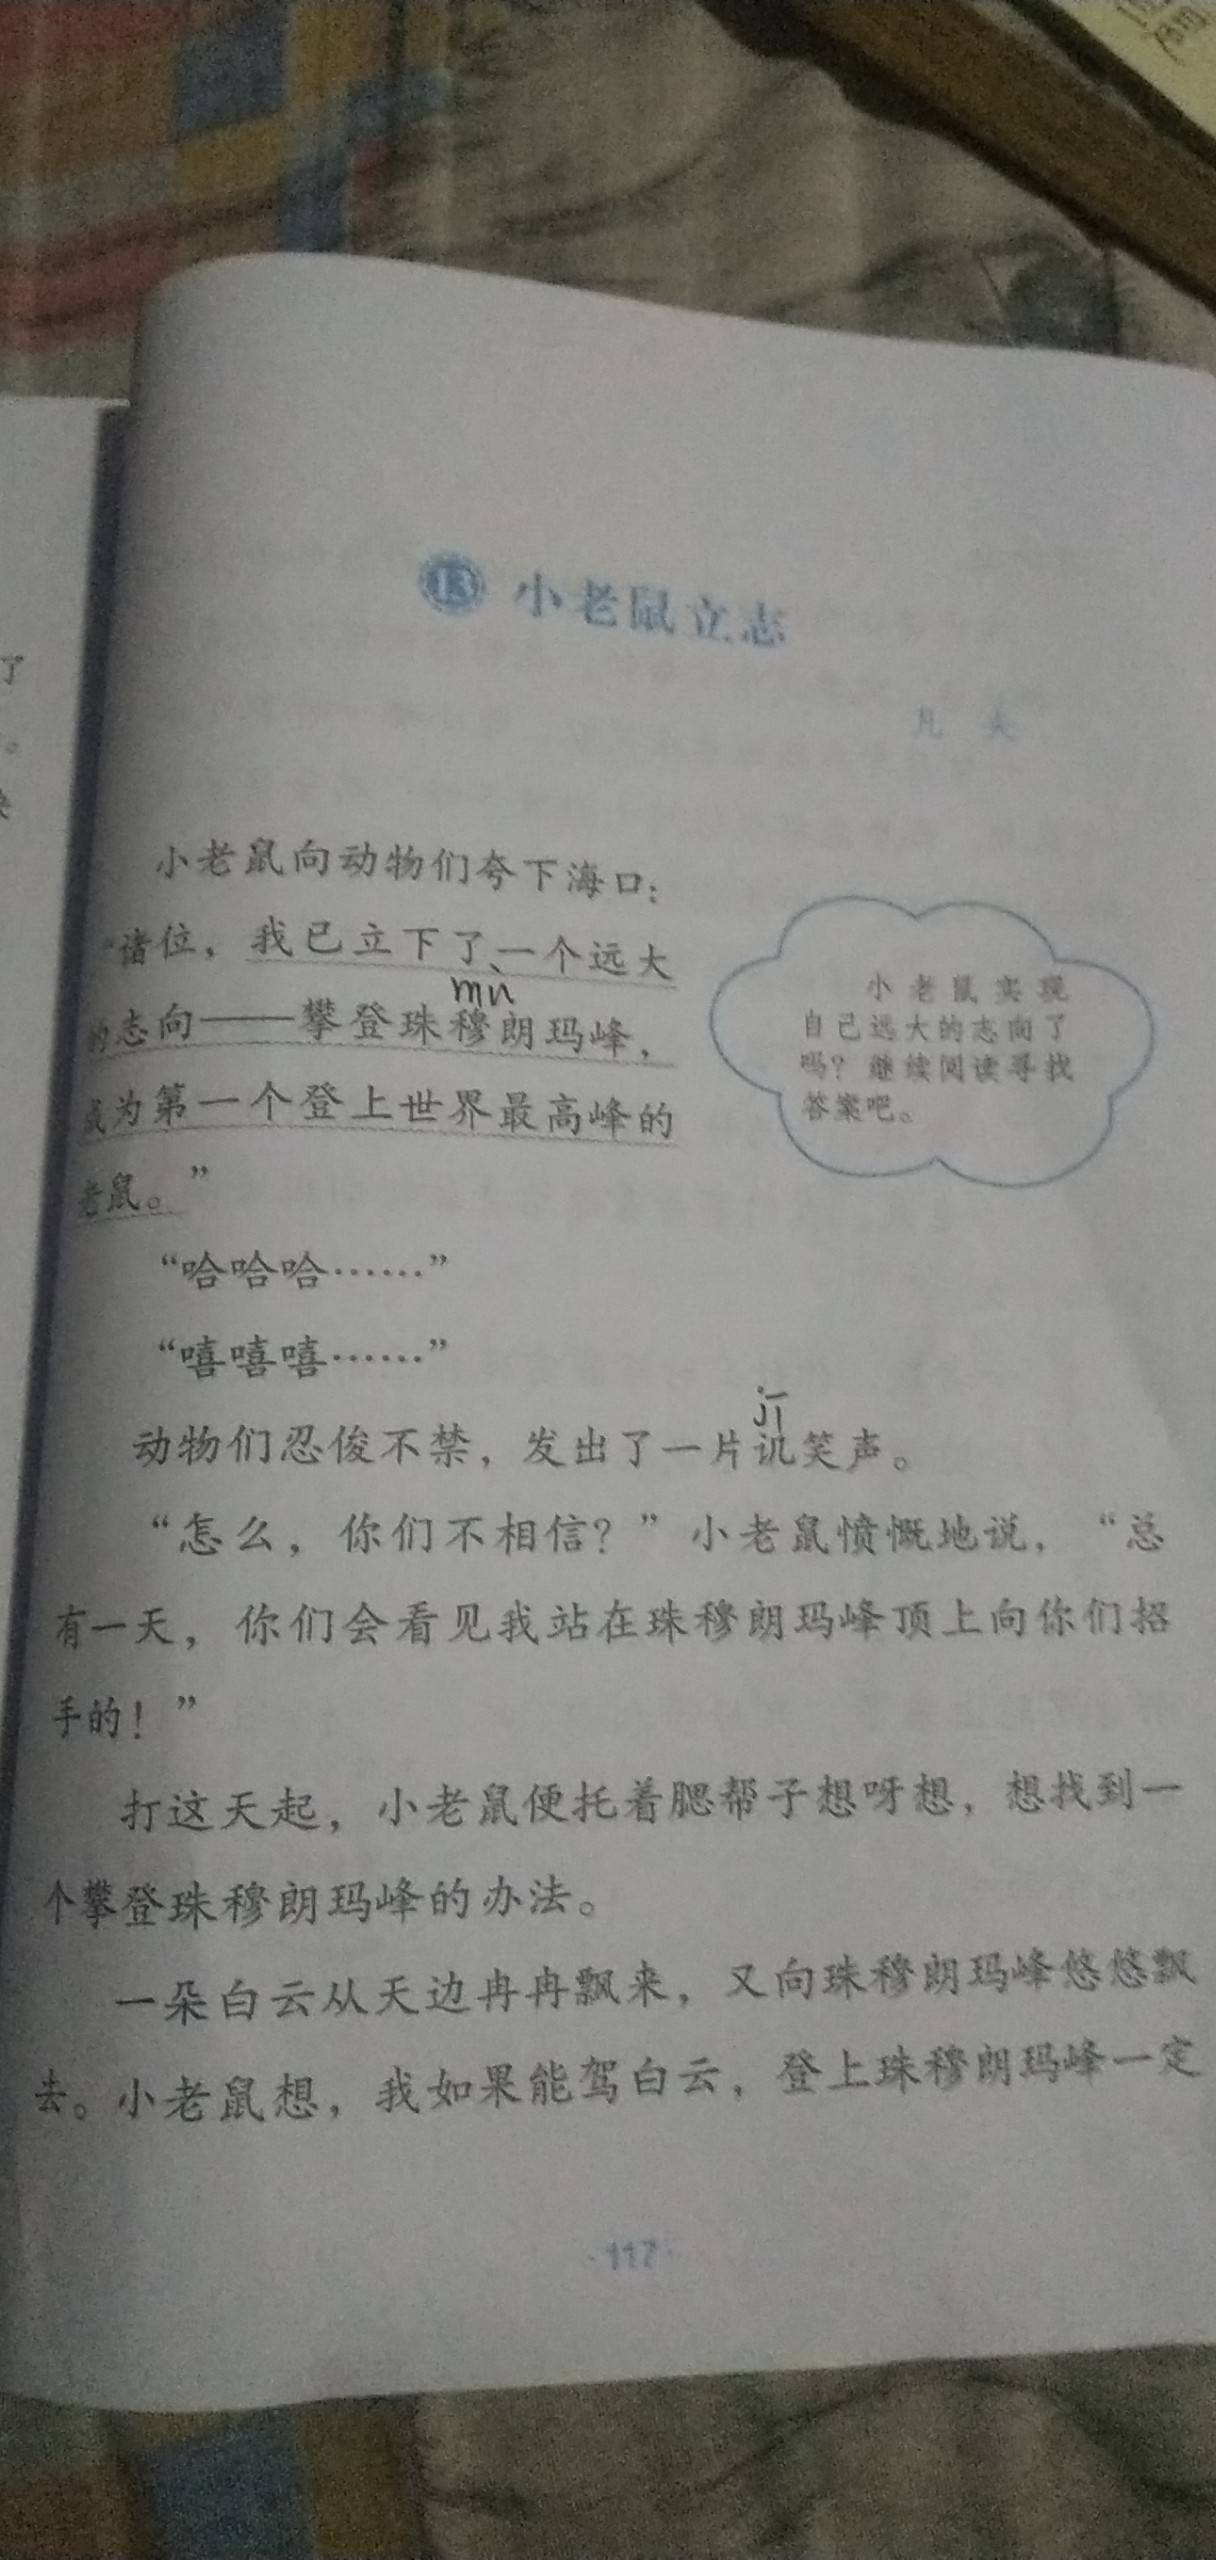 13 小老鼠立志
凡 夫
小老鼠向动物们夸下海口：
“诸位，我已立下了一个远大
mù
的志向——攀登珠穆朗玛峰，
成为第一个登上世界最高峰的
老鼠。”
小老鼠实现
自己远大的志向了
吗？继续阅读寻找
答案吧。
“哈哈哈……”
“嘻嘻嘻……”
jī
动物们忍俊不禁，发出了一片讥笑声。
“怎么，你们不相信？”小老鼠愤慨地说，“总
有一天，你们会看见我站在珠穆朗玛峰顶上向你们招
手的！”
打这天起，小老鼠便托着腮帮子想呀想，想找到一
个攀登珠穆朗玛峰的办法。
一朵白云从天边冉冉飘来，又向珠穆朗玛峰悠悠飘
去。小老鼠想，我如果能驾白云，登上珠穆朗玛峰一定
·117·
了
。